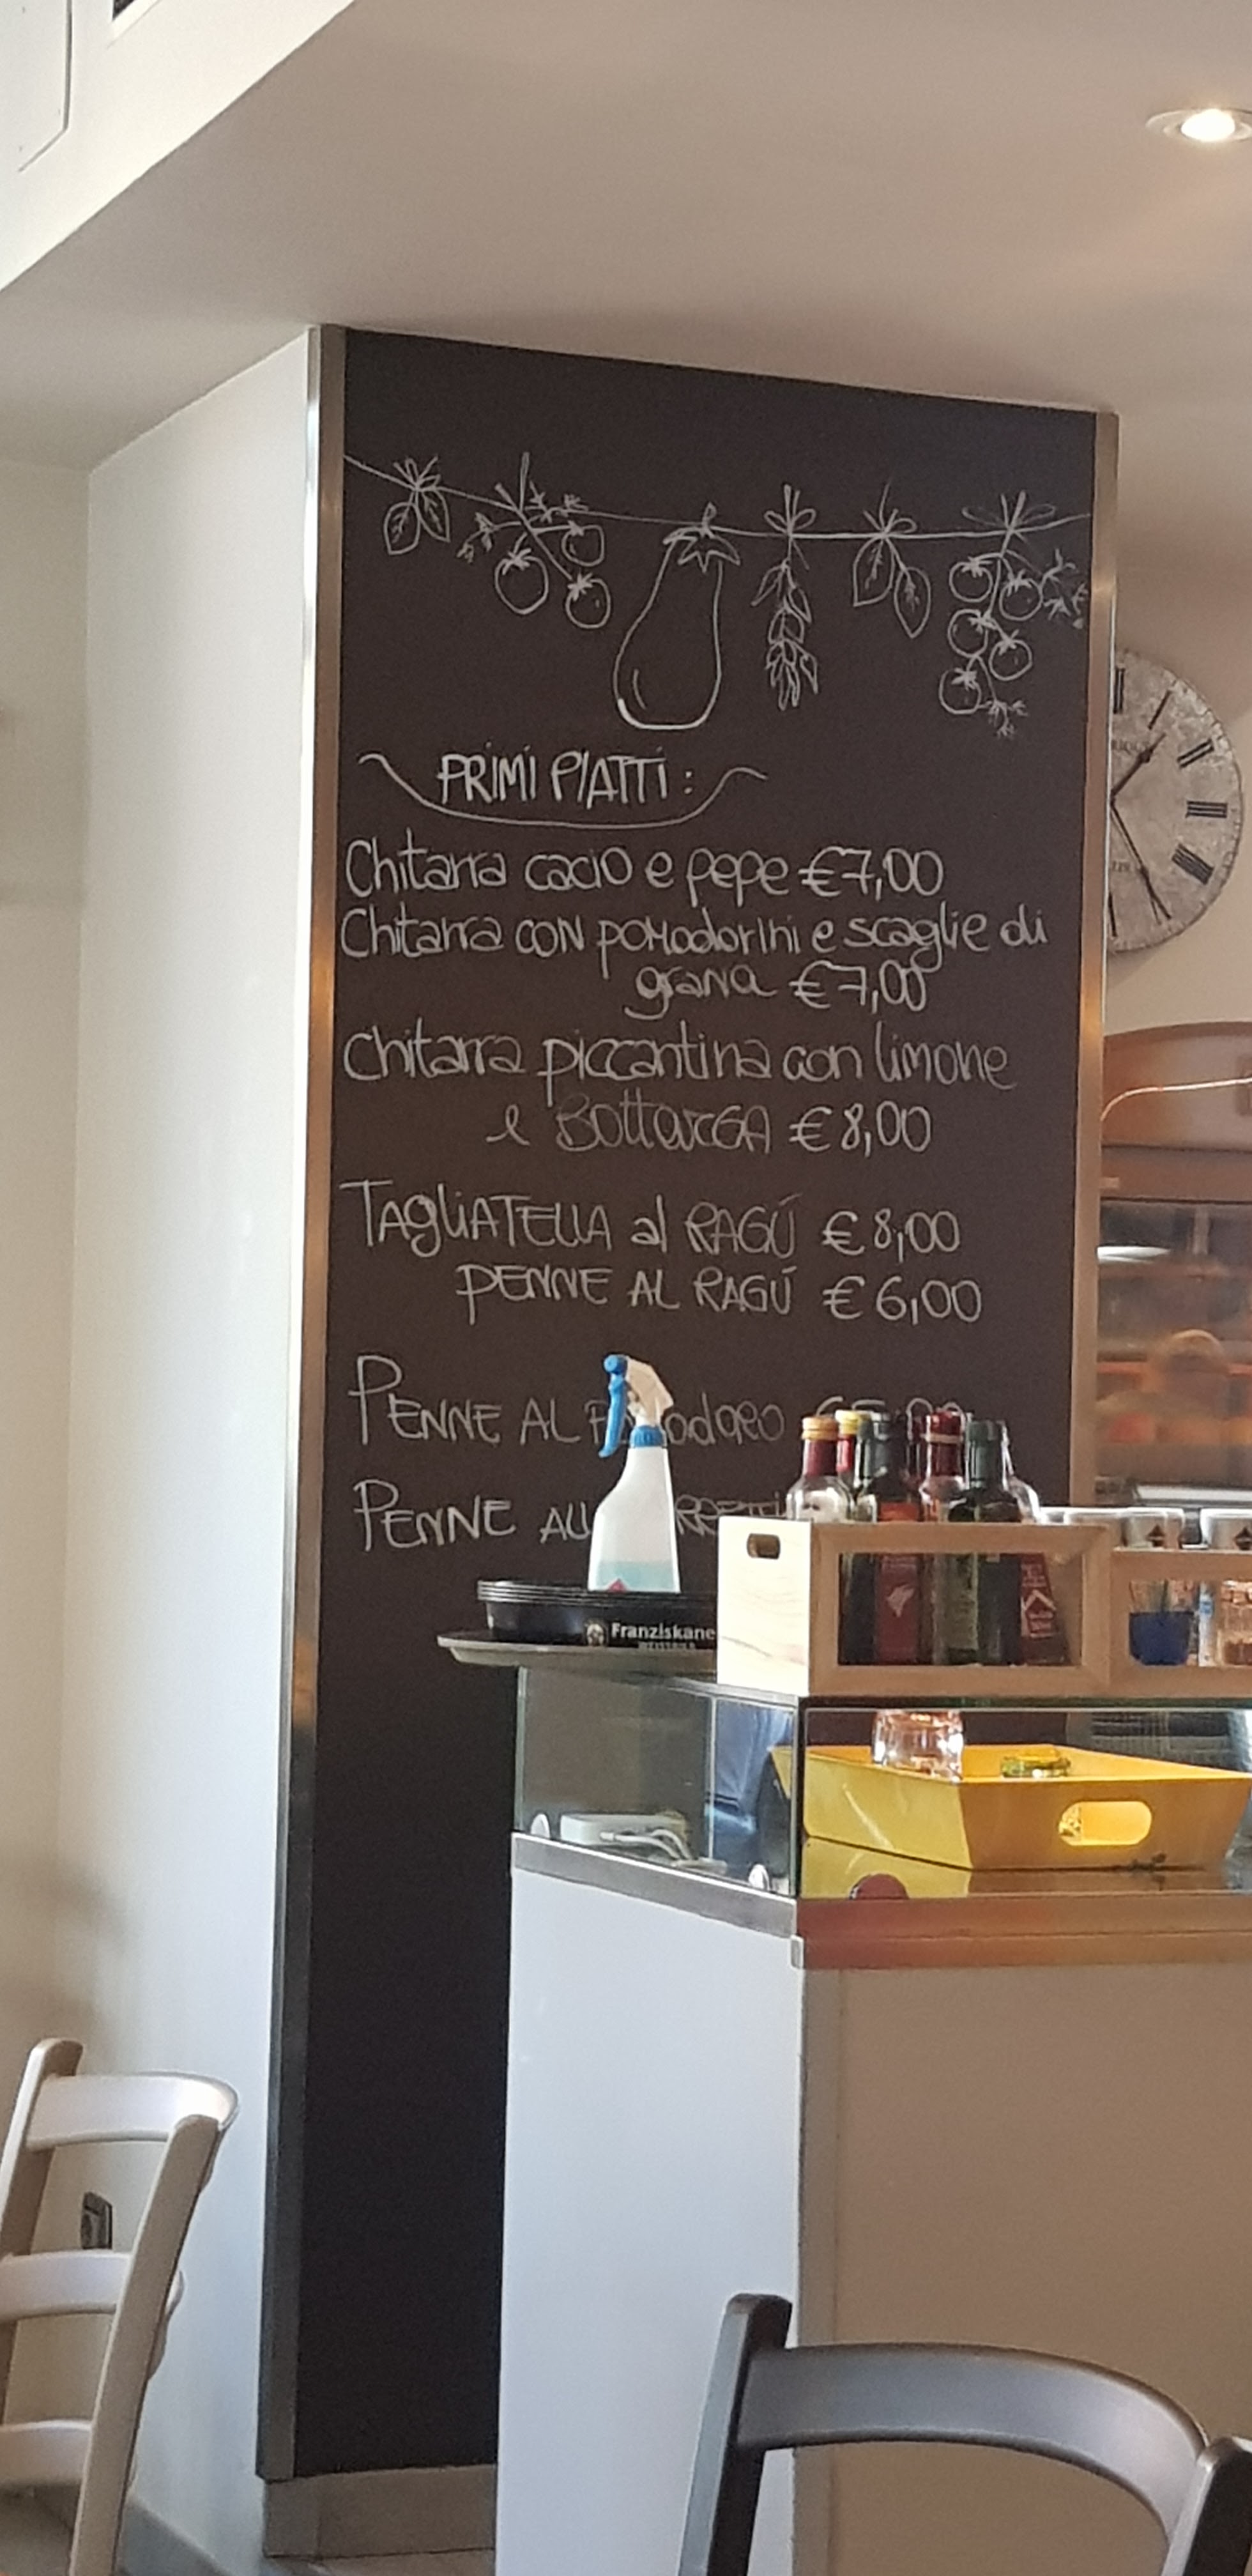 PRIMI PIATTI:
Chitarra cacio e pepe €7,00
Chitarra con pomodorini e scaglie di
grana €7,00
Chitarra piccantina con limone
e BOTTARGA €8,00
TAGLIATELLA al RAGÚ €8,00
PENNE AL RAGÚ €6,00
PENNE AL
PENNE
Franziskane